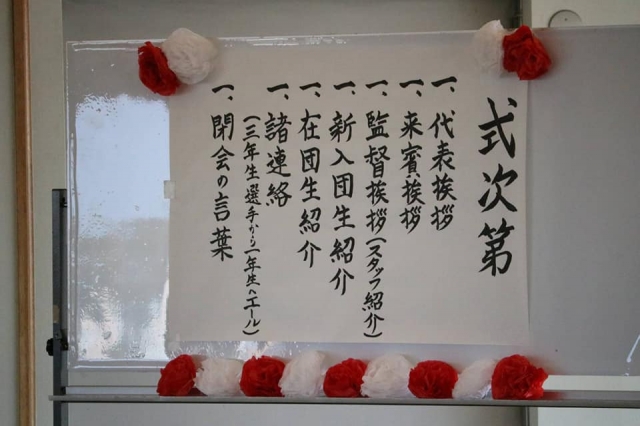 式次第
一、代表挨拶
一、来賓挨拶
一、監督挨拶(スタッフ紹介)
一、新入団生紹介
一、在団生紹介
一、諸連絡
(三年生選手から一年生へエール)
一、閉会の言葉